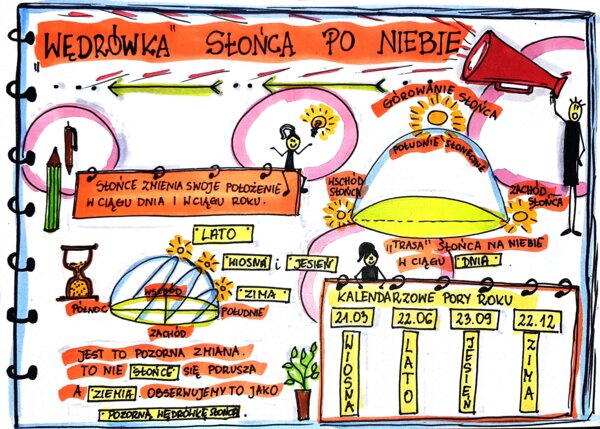 „WĘDRÓWKA" SŁOŃCA PO NIEBIE
GÓROWANIE SŁOŃCA
POŁUDNIE SŁONECZNE
WSCHÓD
SŁOŃCA
ZACHÓD
SŁOŃCA
SŁOŃCE ZMIENIA SWOJE POŁOŻENIE
W CIĄGU DNIA I W CIĄGU ROKU.
„TRASA" SŁOŃCA NA NIEBIE
W CIĄGU DNIA
LATO
WIOSNA i JESIEŃ
ZIMA
WSCHÓD
PÓŁNOC
POŁUDNIE
ZACHÓD
KALENDARZOWE PORY ROKU
21.03 22.06 23.09 22.12
WIOSNA LATO JESIEŃ ZIMA
JEST TO POZORNA ZMIANA.
TO NIE SŁOŃCE SIĘ PORUSZA
A ZIEMIA. OBSERWUJEMY TO JAKO
POZORNĄ WĘDRÓWKĘ SŁOŃCA.